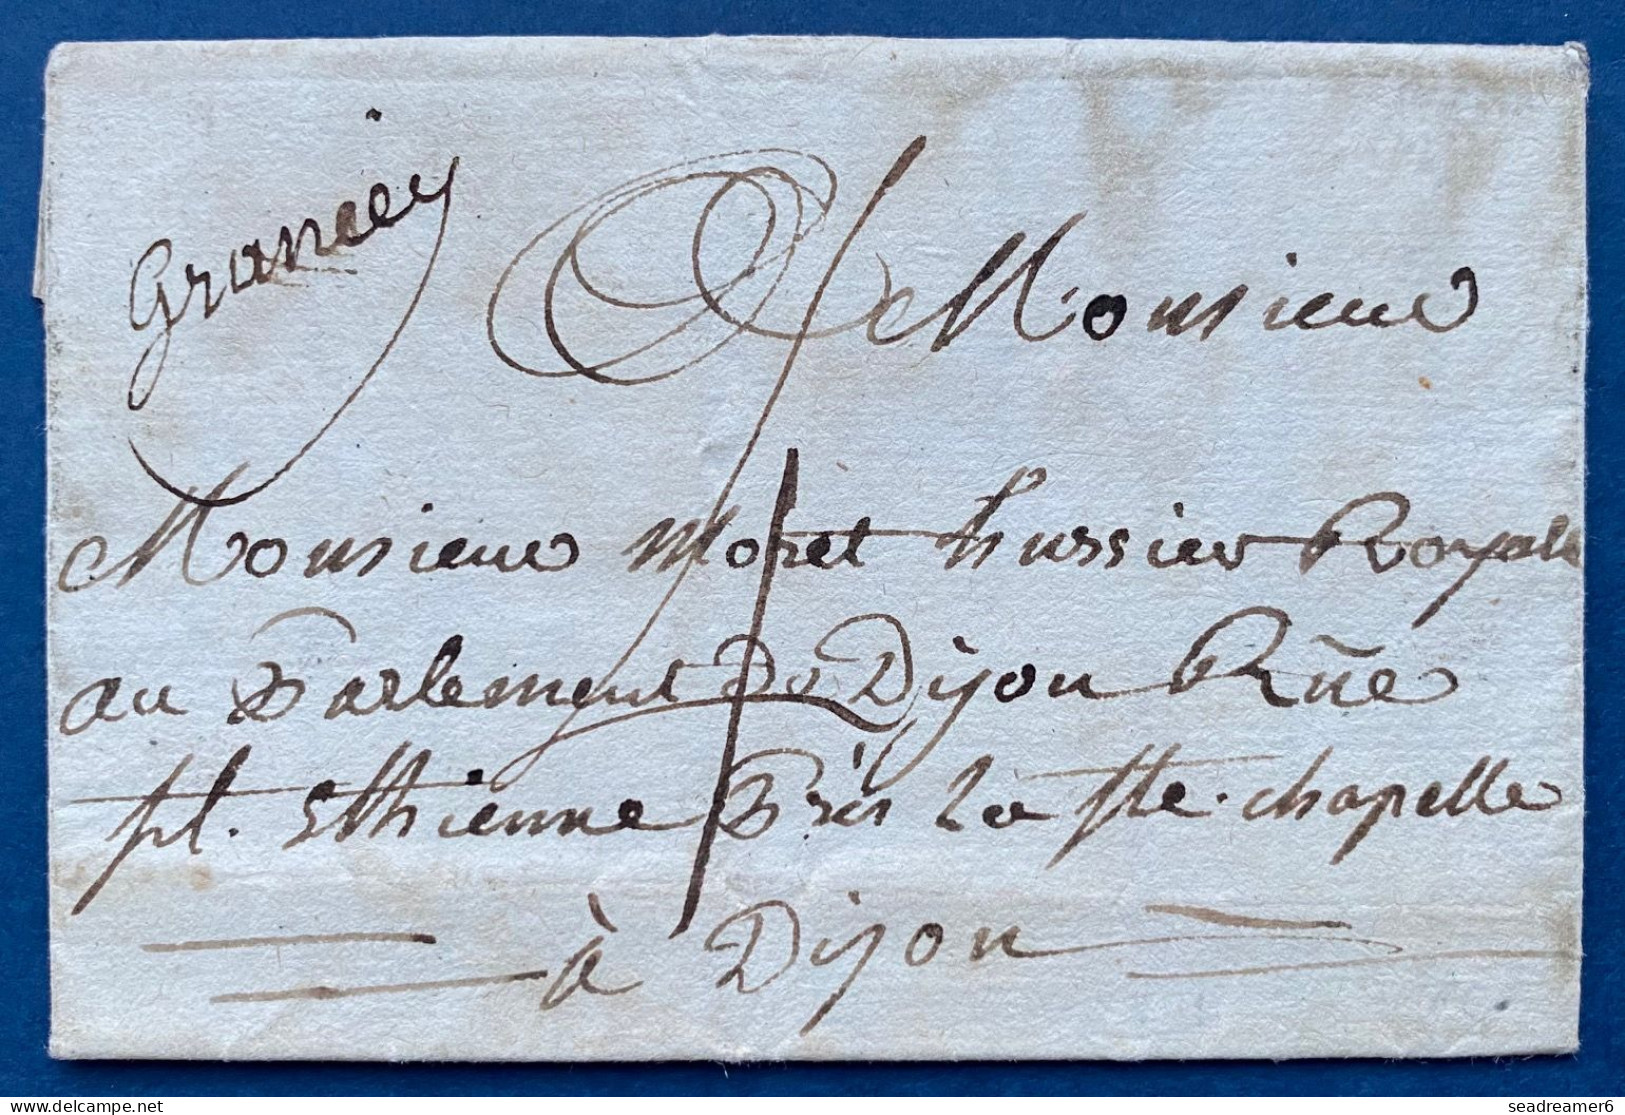 Grancey
Monsieur
Monsieur Moret hussier Royale
au Parlement De Dijon Rüe
pl. Ethienne Près La Ste. chapelle
à Dijon
delcampe.net
seadreamer6